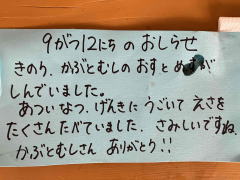 9がつ12にちのおしらせ
きのう、かぶとむしのおすとめすが
しんでいました。
あついなつ、げんきにうごいてえさを
たくさんたべていました。さみしいですね。
かぶとむしさん ありがとう!!